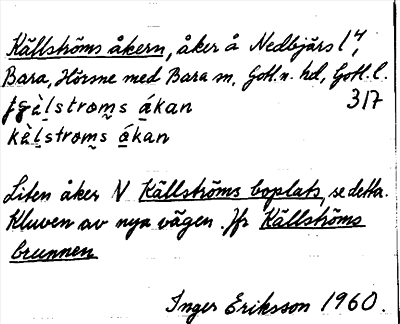 Källströms åkern, åker å Nedbjärs 1⁴,
Bara, Hörsne med Bara sn, Gotl. n. hd, Gotl. l.
317
kälstroms åkan
Liten åker N Källströms boplats, se detta.
Kluven av nya vägen. Jfr Källströms
brunnen
Inger Eriksson 1960.